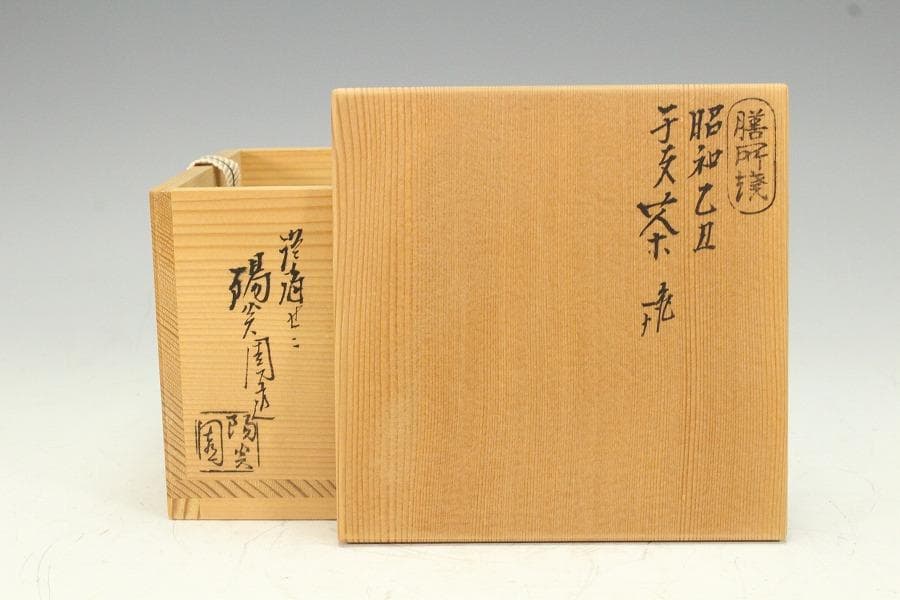 膳所焼
昭和乙丑
干支茶碗
陽炎園造
陽炎
園